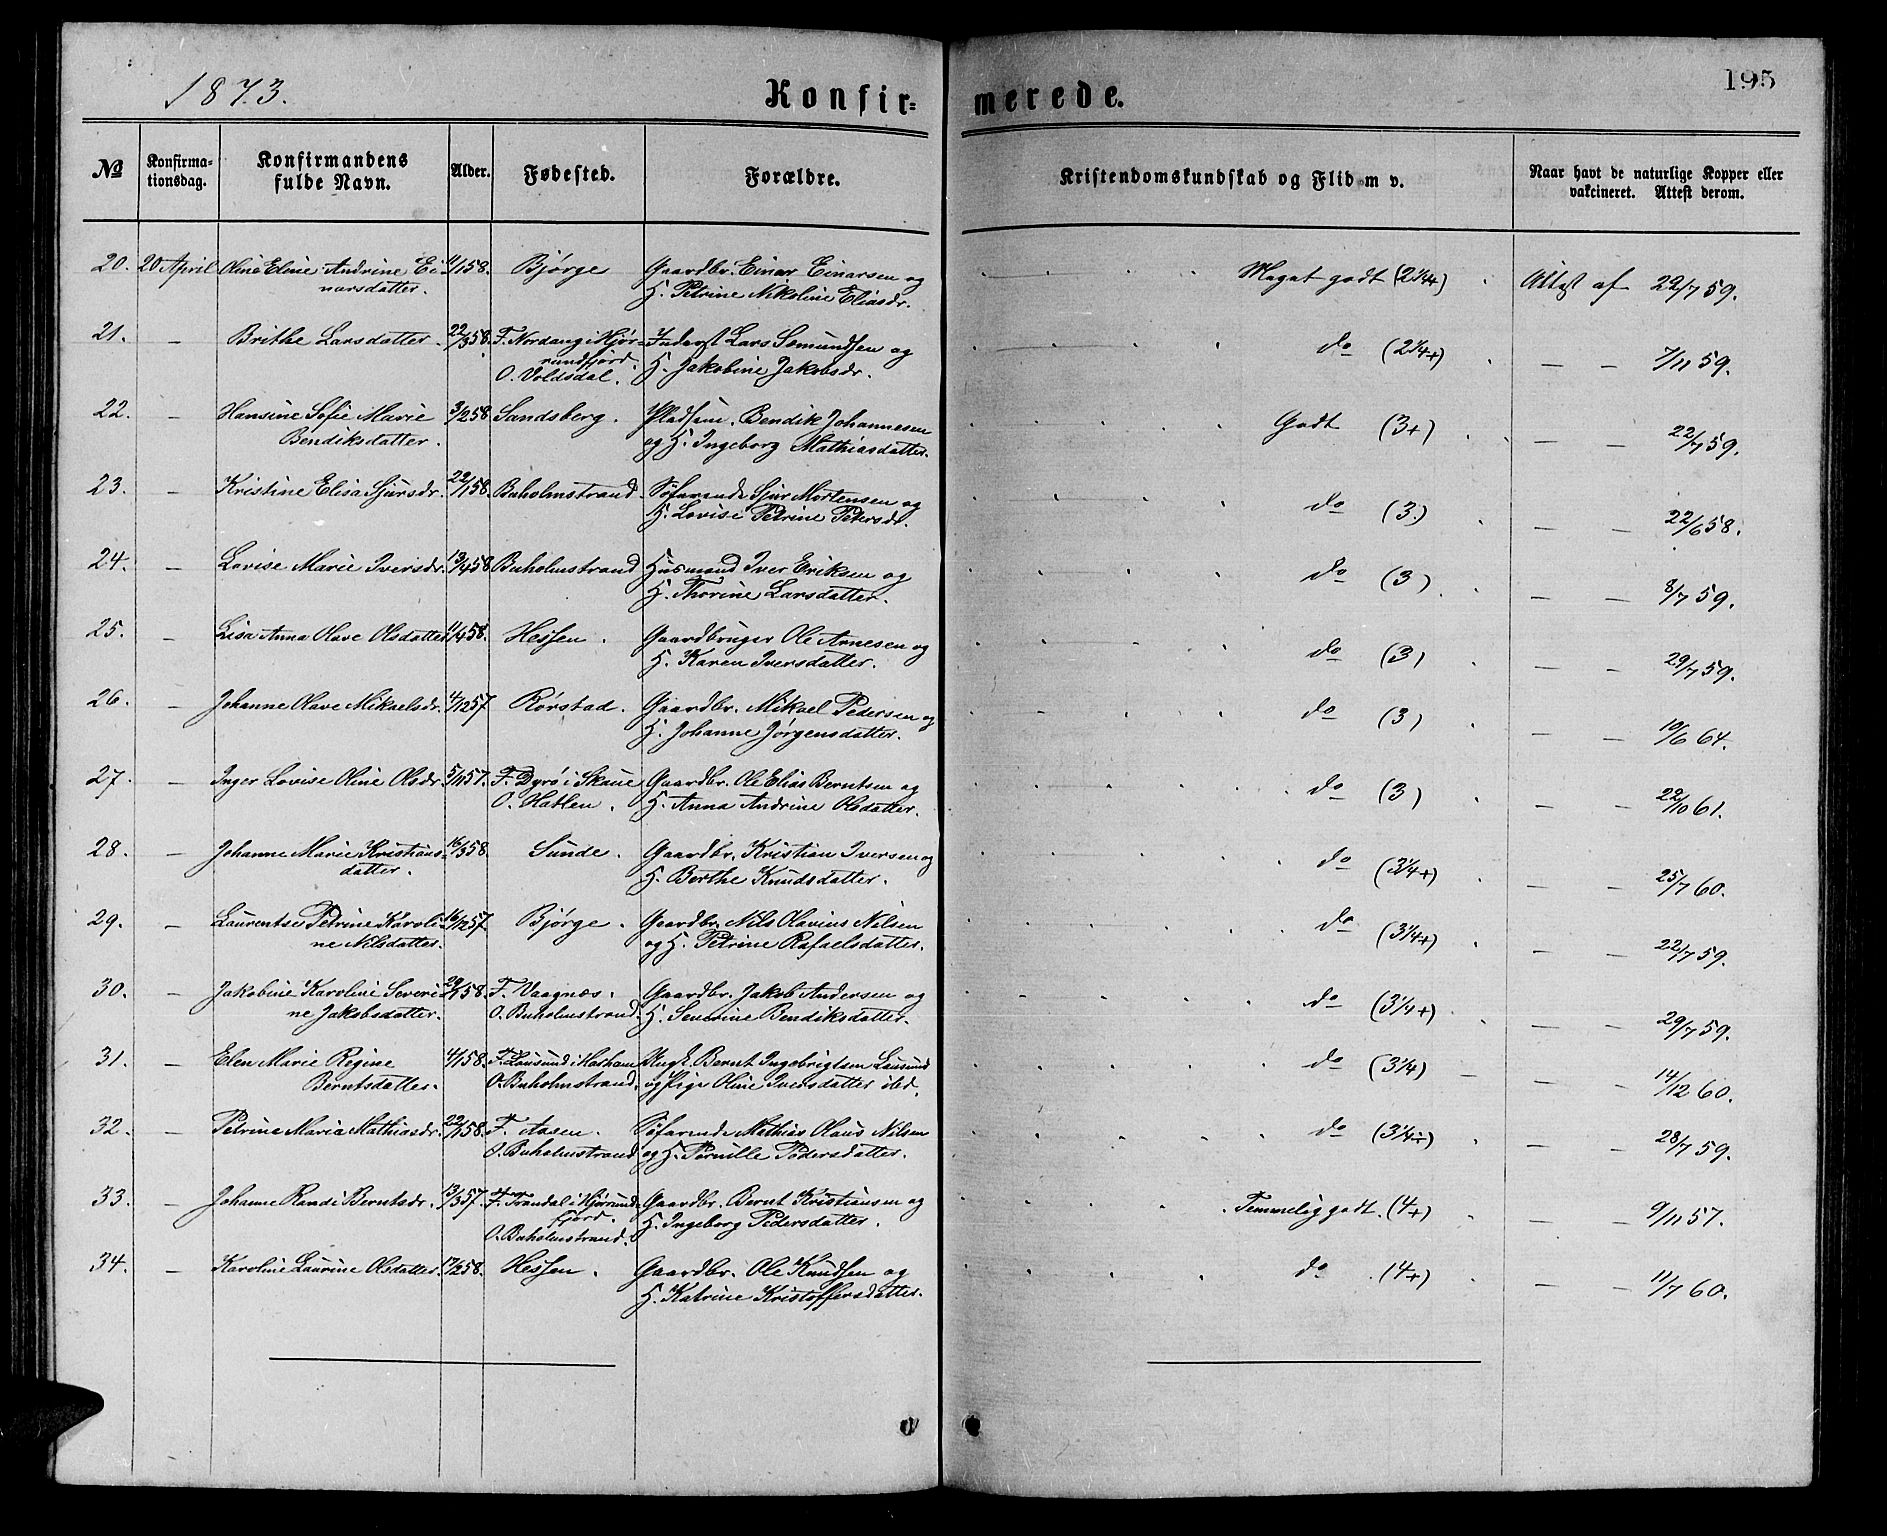 1873.
Konfir=
merede.
195
No
Konfirma=
tionsdag.
Konfirmandens
fulde Navn.
Alder.
Fødested.
Forældre.
Kristendomskundskab og Flid m v.
Naar havt de naturlige Kopper eller
vakcineret. Attest derom.
20. 20 April Oline Eline Andrine Ei 58. Bjørge Gaardbr. Einar Einarsen og Meget godt (2¼+) Attest af 22/7 59.
narsdatter. H. Petrine Nikoline Eliasdr.
21. — Brithe Larsdatter. 22/3 58. F. Nordang i Hjør= Inderst Lars Semundsen og do (2¼+) — — 7/11 59.
rundfjord. H. Jakobine Jakobsdr.
O. Voldsdal.
22. — Hansine Sofie Marie 3/2 58 Sandsberg. Pladsm. Bendik Johannesen Godt (3+) — — 22/7 59.
Bendiksdatter. og H. Ingeborg Mathiasdatter.
23. — Kristine Elisa Sjursdr. 22/1 58. Buholmstrand Søfarende Sjur Mortensen og do (3.) — — 22/6 58.
H. Lovise Petrine Petersdr.
24. — Lovise Marie Iversdr. 13/4 58 Buholmstrand Husmand Iver Eriksen og do (3) — — 8/7 59.
H. Thorine Larsdatter.
25. — Lisa Anna Olave Olsdatter 11/4 58. Hessen. Gaardbruger Ole Arnesen og do (3) — — 29/7 59.
H. Karen Iversdatter.
26. — Johanne Olave Mikaelsdr. 4/12 57 Rørstad. Gaardbr. Mikael Pedersen og do (3) — — 10/6 64.
H. Johanne Jørgensdatter.
27. — Inger Lovise Oline Olsdr. 5/11 57. F. Dyrø i Skaue Gaardbr. Ole Elias Berntsen og do (3) — — 22/10 61.
O. Hatlen. H. Anna Andrine Olsdatter.
28. — Johanne Marie Kristians= 16/3 58. Sunde. Gaardbr. Kristian Iversen og do (3¼+) — — 25/7 60.
datter. H. Berthe Knudsdatter.
29. — Laurentse Petrine Karoli= 16/12 57. Bjørge. Gaardbr. Nils Olavius Nilsen do (3¼+) — — 22/7 59.
ne Nilsdatter. og H. Petrine Rafaelsdatter.
30. — Jakobine Karoline Severi= 58. F. Vaagnæs. Gaardbr. Jakob Andersen og do (3¼+) — — 29/7 59.
ne Jakobsdatter. O. Buholmstrand. H. Severine Bendiksdatter.
31. — Elen Marie Regine 4/1 58. F. Lausund i Harham Ungk. Bernt Ingebrigtsen Lausund do (3¼) — — — 14/12 60.
Berntsdatter. O. Buholmstrand. og Pige Oline Iversdatter ibd.
32. — Petrine Maria Mathiasdr. 22/1 58. F. Aasen. Søfarende Mathias Olaus Nilsen do (3¼÷) — — 28/7 59.
O. Buholmstrand og H. Pernille Pedersdatter.
33. — Johanne Randi Berntsdr. 13/3 57. F. Trandal i Hjørund= Gaardbr. Bernt Kristiansen og Temmelig godt. (4+) — — 9/11 57.
fjord. H. Ingeborg Pedersdatter.
O. Buholmstrand.
34. — Karoline Laurine Olsdatter. 17/2 58. Hessen. Gaardbr. Ole Knudsen og do (4+) — — 11/7 60.
H. Katrine Kristoffersdatter.